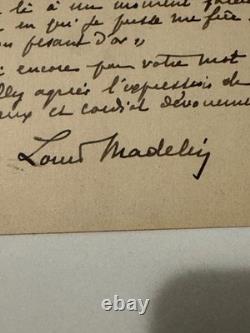 là à un moment
en qui je puisse me fier
son pesant d'or »
encore pour votre mot
agréer l'expression de
et cordial dévouement
Louis Madelin